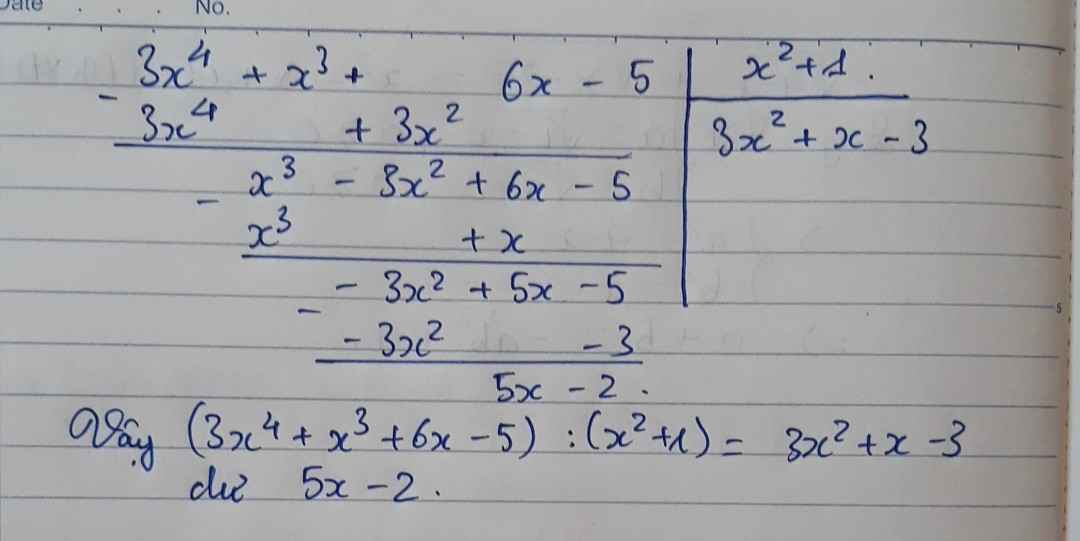 Date . . . No.
3x⁴ + x³ + 6x - 5 | x² + 1 .
- 3x⁴ + 3x² | 3x² + x - 3
x³ - 3x² + 6x - 5
- x³ + x
- 3x² + 5x - 5
- - 3x² - 3
5x - 2 .
Vậy (3x⁴ + x³ + 6x - 5) : (x² + 1) = 3x² + x - 3
dư 5x - 2 .
5